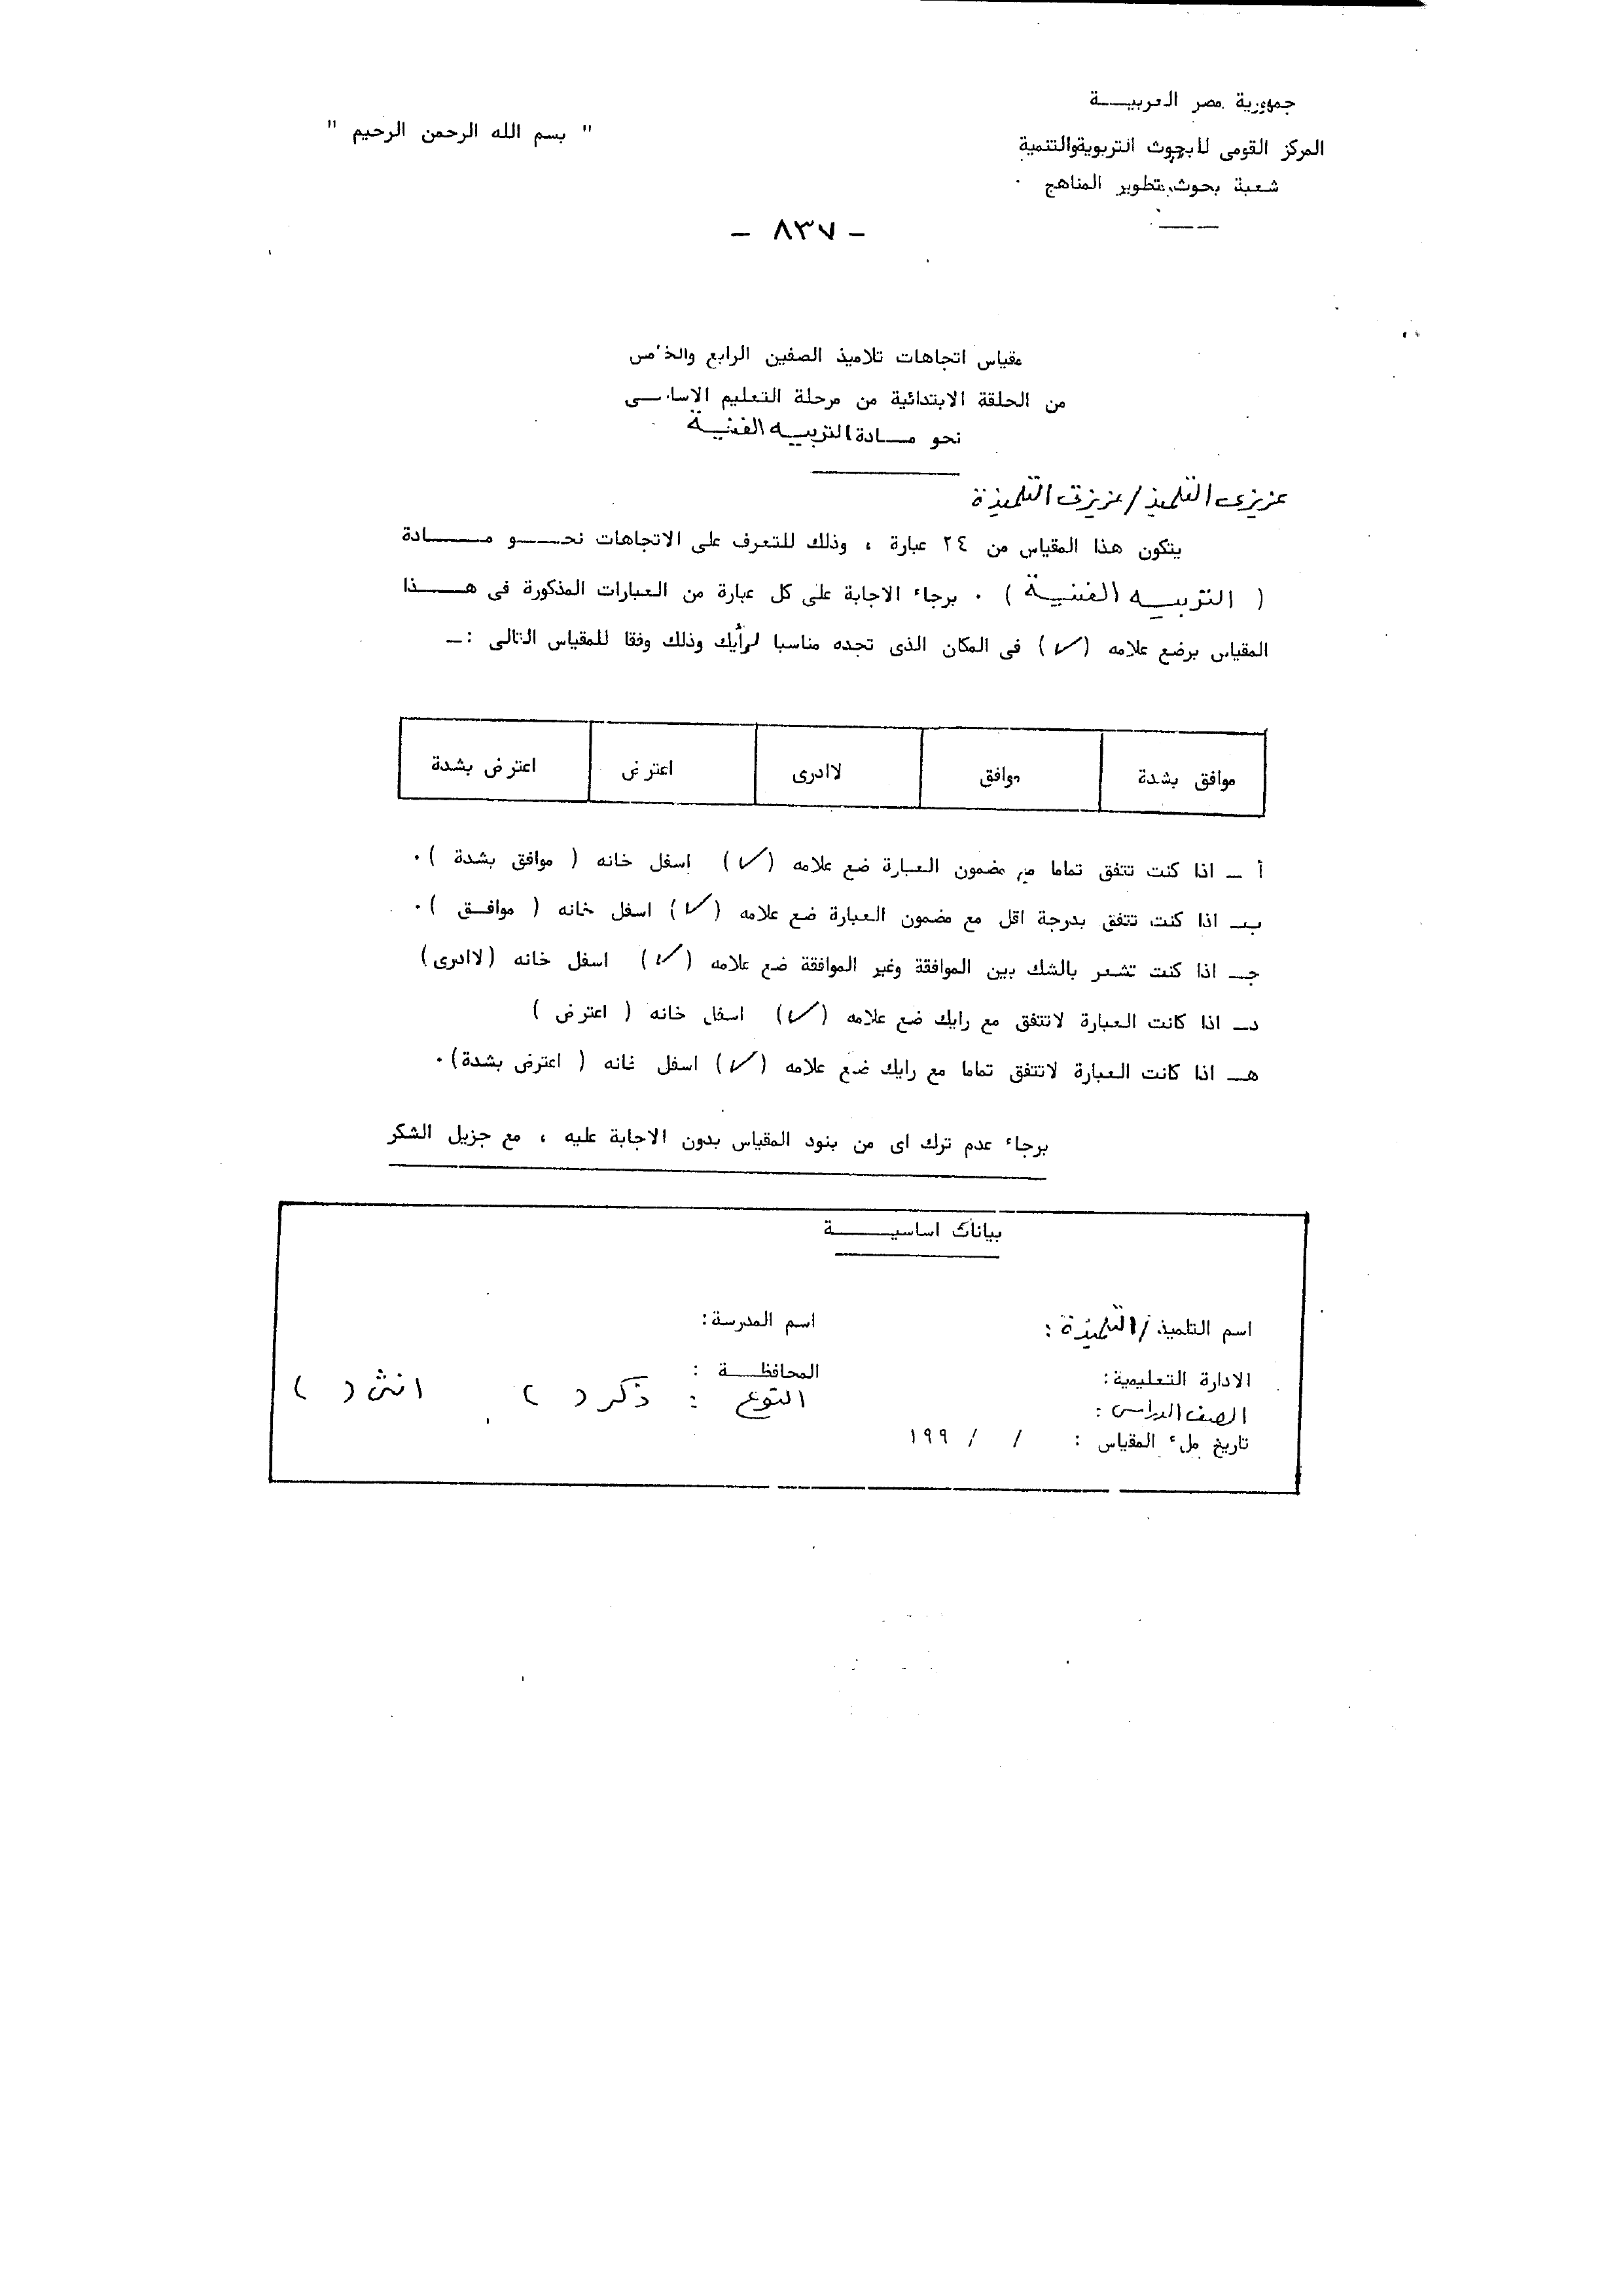 جمهورية مصر العربيـــة
المركز القومى للبحوث التربوية والتنمية
شعبة بحوث تطوير المناهج ٠
" بسم الله الرحمن الرحيم "
- ٨٣٧ -
مقياس اتجاهات تلاميذ الصفين الرابع والخامس
من الحلقة الابتدائية من مرحلة التعليم الاساسـى
نحو مـــادة التربيـه الفنيـة
عزيزى التلميذ / عزيزتى التلميذة
يتكون هذا المقياس من ٢٤ عبارة ، وذلك للتعرف على الاتجاهات نحـــو مــــادة
( التربيـه الفنيـة ) ٠ برجاء الاجابة على كل عبارة من العبارات المذكورة فى هـــذا
المقياس بوضع علامه (✓) فى المكان الذى تجده مناسبا لرأيك وذلك وفقا للمقياس التالى :ــ
موافق بشدة موافق لاادرى اعترض اعترض بشدة
أ ــ اذا كنت تتفق تماما مع مضمون العبارة ضع علامه (✓) اسفل خانه ( موافق بشدة )٠
بــ اذا كنت تتفق بدرجة اقل مع مضمون العبارة ضع علامه (✓) اسفل خانه ( موافــق )٠
جــ اذا كنت تشعر بالشك بين الموافقة وغير الموافقة ضع علامه (✓) اسفل خانه (لاادرى)
دــ اذا كانت العبارة لاتتفق مع رايك ضع علامه (✓) اسفل خانه ( اعترض )
هــ اذا كانت العبارة لاتتفق تماما مع رايك ضع علامه (✓) اسفل خانه ( اعترض بشدة)٠
برجاء عدم ترك اى من بنود المقياس بدون الاجابة عليه ، مع جزيل الشكر
بيانات اساسيـــــة
اسم التلميذ / التلميذة : اسم المدرسة:
الادارة التعليمية: المحافظـــة :
الصف الدراسى : النوع : ذكر ( ) انثى ( )
تاريخ ملء المقياس : / / ١٩٩